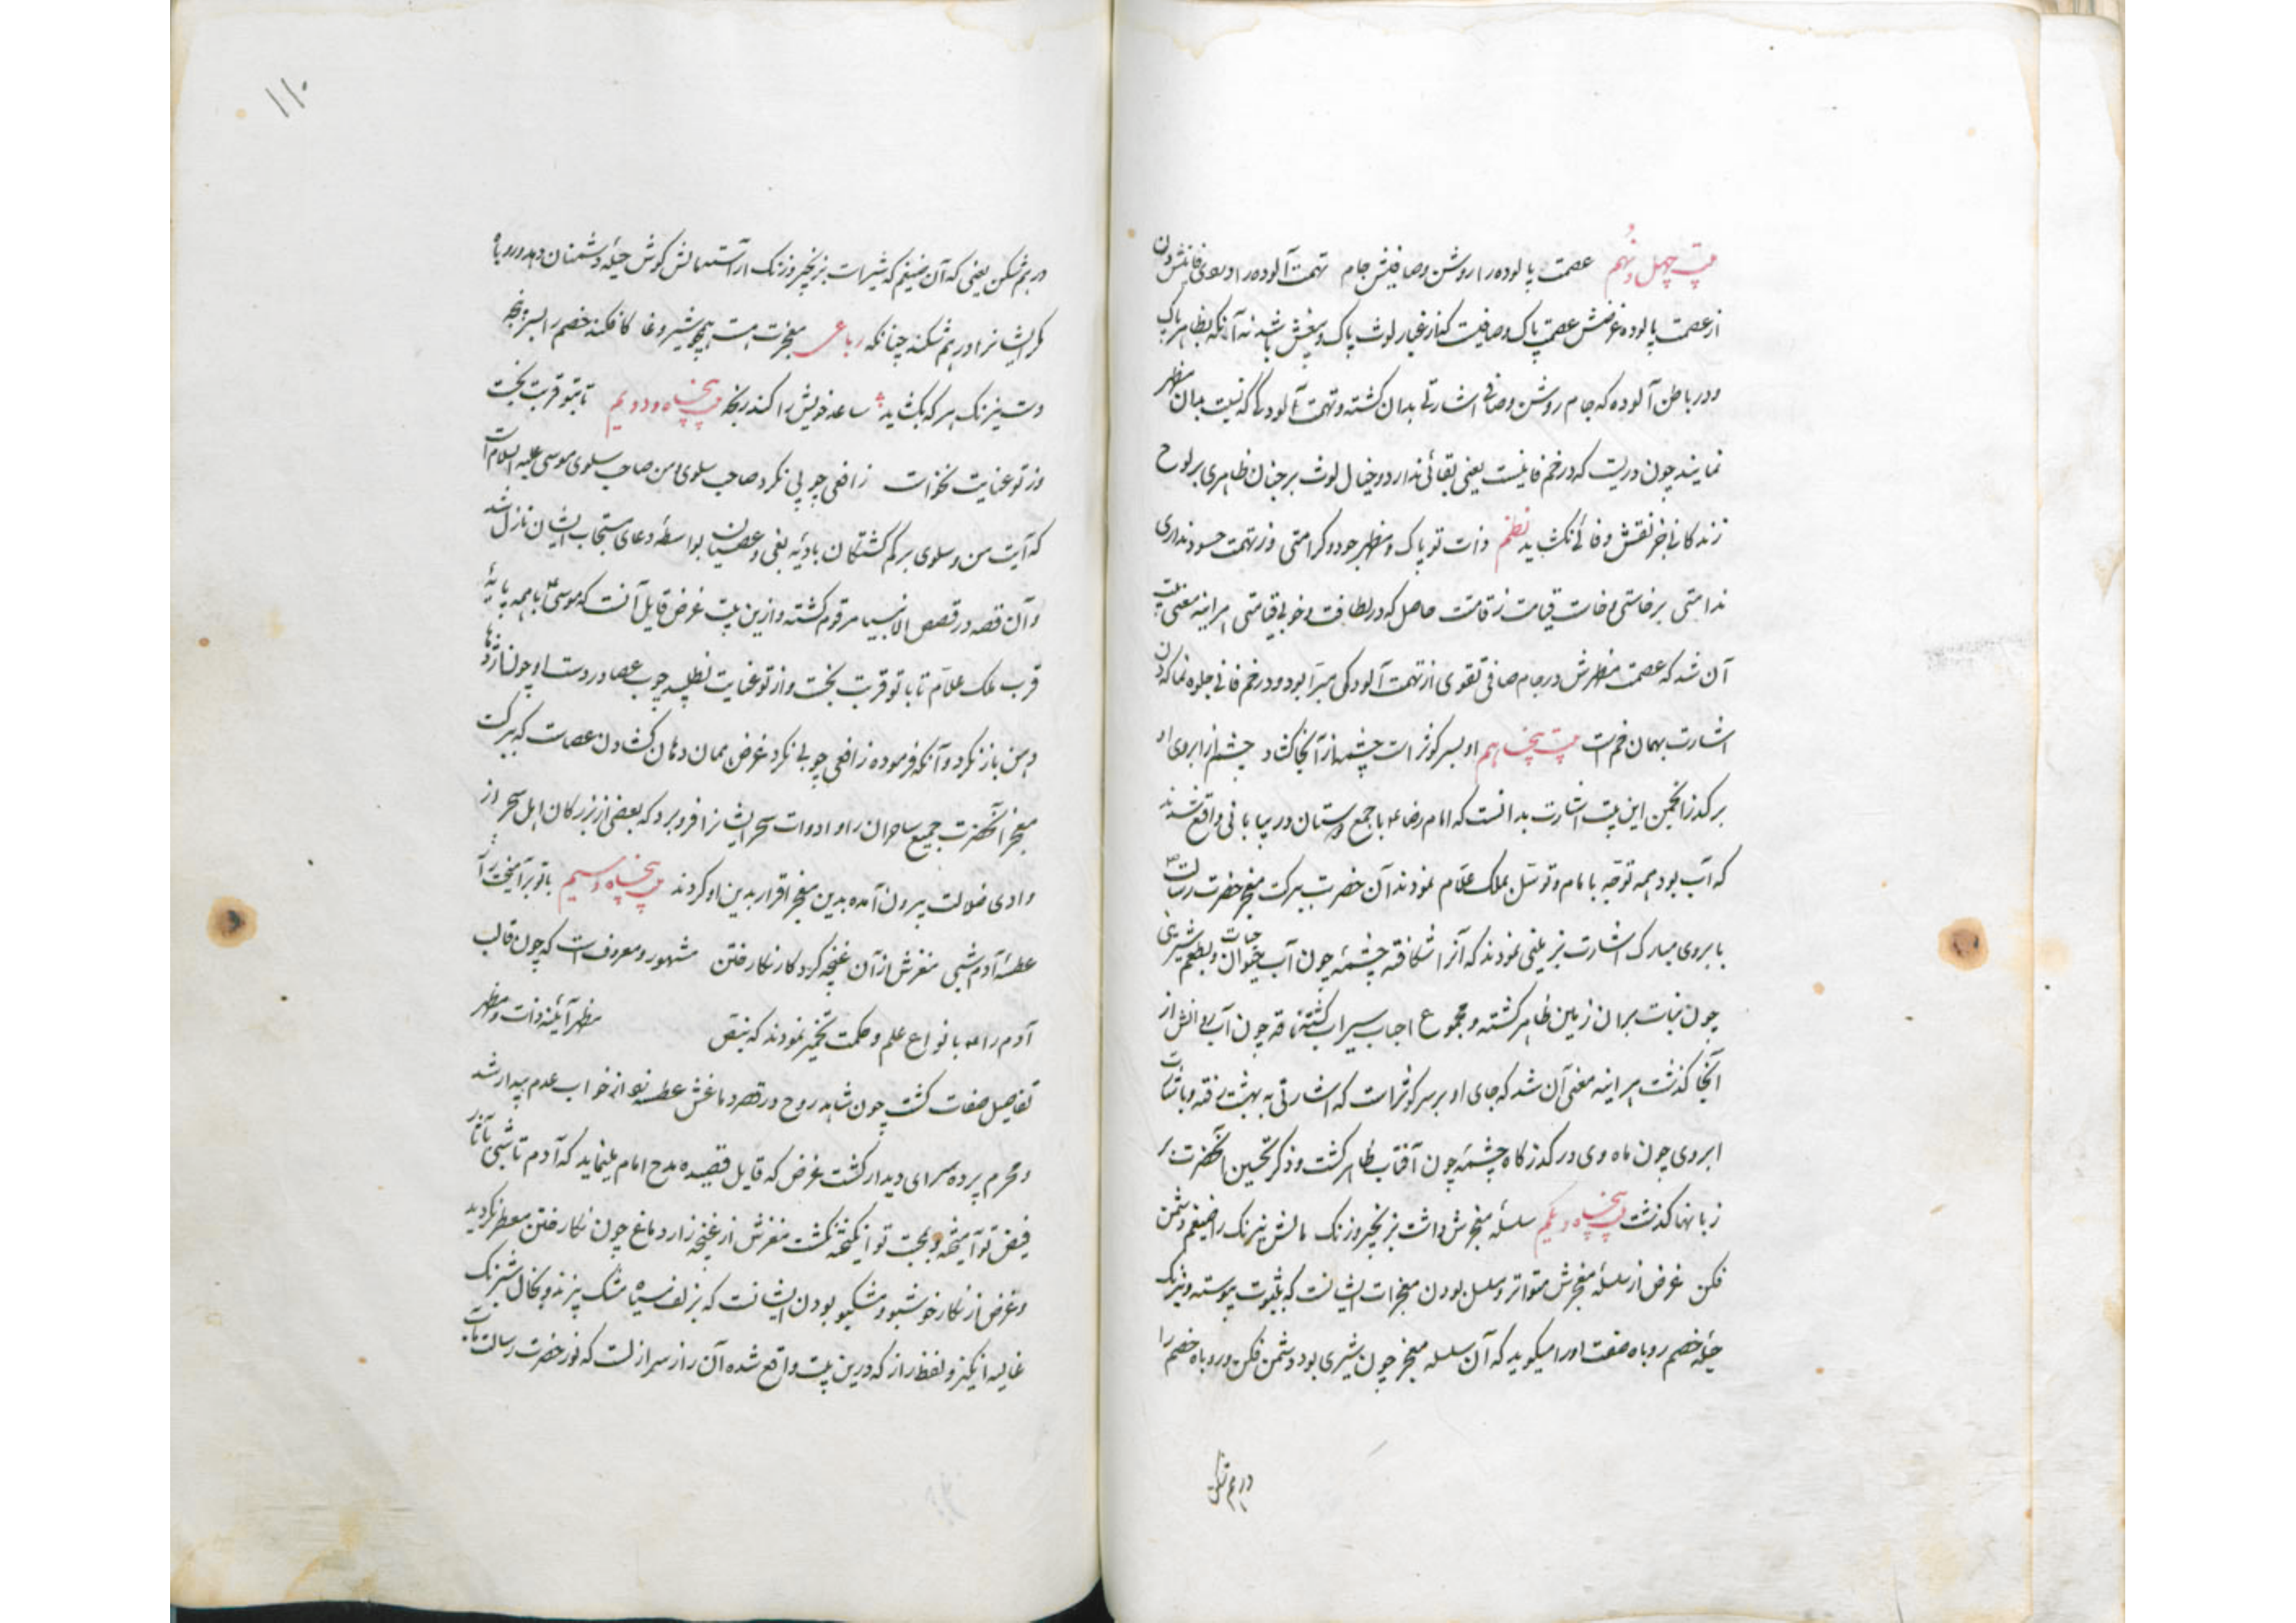 بیت چهل و نهم عصمت پالوده را روشن و صافیش جام تهمت آلوده را دردی فانیش دن
از عصمت پالوده غرضش عصمت پاک و صافیست کز غبار لوث پاک و بیغش باشد نه آنکه بظاهر پاک
و در باطن آلوده که جام روشن و صافی اشارتی بدان گشته و تهمت آلودگی که نسبت بدان مطهر
نمایند چون دردیست که در خم فانیست یعنی بقائی ندارد و خیال لوث بر جنان ظاهری بر لوح
زندگانی جز نقش وفائی نکشاید نظم ذات تو پاک و مظهر جود و کرامتی وز تهمت حسود نداری
ندامتی برخاستی و خاست قیامت ز قامتت حاصل که در لطافت و خوبی قیامتی هر آینه معنی بیت
آن شد که عصمت مطهرش در جام صافی تقوی از تهمت آلودگی مبرا بود و در خم فانی جلوه نما که دن
اشارت بهمان خم است بیت پنجاهم او بسر کوثر است چشمه از آنجا گشاد چشم از ابروی او
بر گذر انجمن این بیت اشارت بدانست که امام رضا ع با جمع دوستان در بیابانی واقع شدند
که آب بود همه توجه بامام و توسل بملک علام نمودند آن حضرت ببرکت معجز حضرت رسالت ص
بابروی مبارک اشارت بزمینی نمودند که آنرا شکافته چشمه چون آب حیوان حیات و بطعم شیرینی
چون نبات بران زمین ظاهر گشته و مجموع احباب سیراب گشته ناقه چون آب روانش از
آنجا گذشت هر آینه معنی آن شد که جای او بر سر کوثر است که اشارتی به بهشت رفته و باشارت
ابروی چون ماه وی در گذرگاه چشمه چون آفتاب ظاهر گشت و ذکر تحسین آنحضرت بر
زبانها گذشت بیت پنجاه و یکم سلسله معجزش داشت بزنجیر و زنگ مالش نیرنگ را ضیغم دشمن
فکن غرض از سلسله معجزش متواتر و مسلسل بودن معجزات ایشانست که بثبوت پیوسته و نیرنگ
حیله خصم روباه صفت او را میگوید که آن سلسله معجز چون شیری بود دشمن فکن و روباه خصم را
درهم شکن
۱۱۰
درهم شکن یعنی که آن ضیغم که شیراست بزنجیر و زنگ آراست مالش گوش حیله دشمنان دهد و روباه
مکر ایشانرا درهم شکند چنانکه رباعی معجزت هست همچو شیر وغا کافکند خصم را بسر پنجه
دست نیرنگ هر که بگشاید ساعد خویش را کند رنجه بیت پنجاه و دویم تا بتو قربت نجست
وز تو عنایت نخواست ز افعی چوبی نکرد صاحب سلوی و من صاحب سلوی موسی علیه السلام است
که آیت من و سلوی بر گم گشتگان بادیه بغی و عصیان بواسطه دعای مستجاب ایشان نازل شد
و آن قصه در قصص الانبیا مرقوم گشته و ازین بیت غرض قایل آنست که موسی ع با همه پایه
قرب ملک علام تا با تو قربت نجست و از تو عنایت نطلبید چوب عصا در دست او چون اژدها
دهن باز نکرد و آنکه فرموده ز افعی چوبی نکرد غرض همان دهان گشادن عصاست که ببرکت
معجز آنحضرت جمیع ساحران را و ادوات سحر ایشانرا فرو برد که بعضی از بزرگان اهل سحر از
وادی ضلالت بیرون آمده بدین معجز اقرار بدین او کردند بیت پنجاه و سیم با تو برآمیخت راز
عطسه آدم شبی مغزش از آن غنچه کرد کار نگار ختن مشهور و معروفست که چون قالب
آدم را ع بانواع علم و حکمت تخمیر نمودند که بنقص مظهر آئینه ذات و مظهر
تفاصیل صفات گشت چون شاهد روح در قصر دماغش عطسه نو از خواب عدم بیدار شد
و محرم پرده سرای دیدار گشت غرض که قایل قصیده مدح امام مینماید که آدم تا شبی با تأثیر
فیض تو آمیخته و بمحبت تو انگیخته نگشت مغزش از غنچه زار دماغ چون نگار ختن معطر نگردید
و غرض از نگار خوشبو و مشکبو بودن ایشانست که بزلف سیاه مشک بیزند و بخال شبرنگ
غالیه انگیز و لفظ راز که درین بیت واقع شده آن راز سر ازلست که نور حضرت رسالت مآب